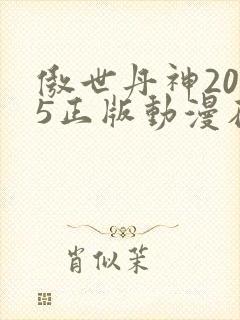 傲世丹神20
5正版動漫在
肖似茉